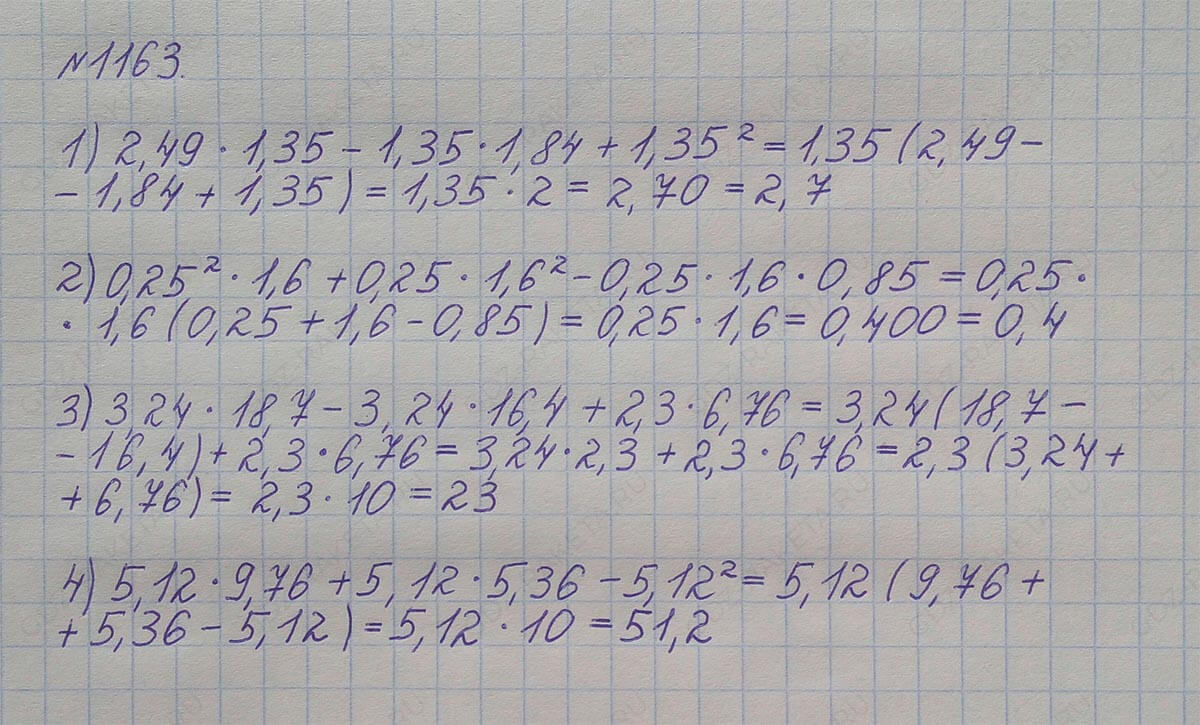 №1163.
1) 2,49 · 1,35 – 1,35 · 1,84 + 1,35² = 1,35 (2,49 –
– 1,84 + 1,35) = 1,35 · 2 = 2,70 = 2,7
2) 0,25² · 1,6 + 0,25 · 1,6² – 0,25 · 1,6 · 0,85 = 0,25 ·
· 1,6 (0,25 + 1,6 – 0,85) = 0,25 · 1,6 = 0,400 = 0,4
3) 3,24 · 18,7 – 3,24 · 16,4 + 2,3 · 6,76 = 3,24 (18,7 –
– 16,4) + 2,3 · 6,76 = 3,24 · 2,3 + 2,3 · 6,76 = 2,3 (3,24 +
+ 6,76) = 2,3 · 10 = 23
4) 5,12 · 9,76 + 5,12 · 5,36 – 5,12² = 5,12 (9,76 +
+ 5,36 – 5,12) = 5,12 · 10 = 51,2